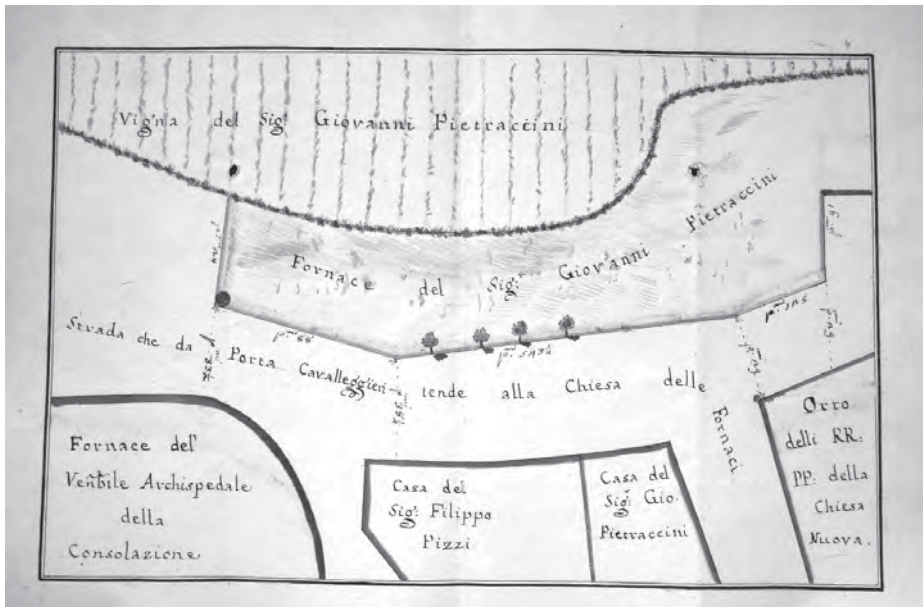 Vigna del Sig.r Giovanni Pietraccini
Fornace del Sig.r Giovanni Pietraccini
Strada che da Porta Cavalleggieri tende alla Chiesa delle Fornaci
Fornace del
Ven̄bile Archispedale
della
Consolazione
Casa del
Sig.r Filippo
Pizzi
Casa del
Sig.r Gio.
Pietraccini
Orto
delli RR:
PP: della
Chiesa
Nuova.